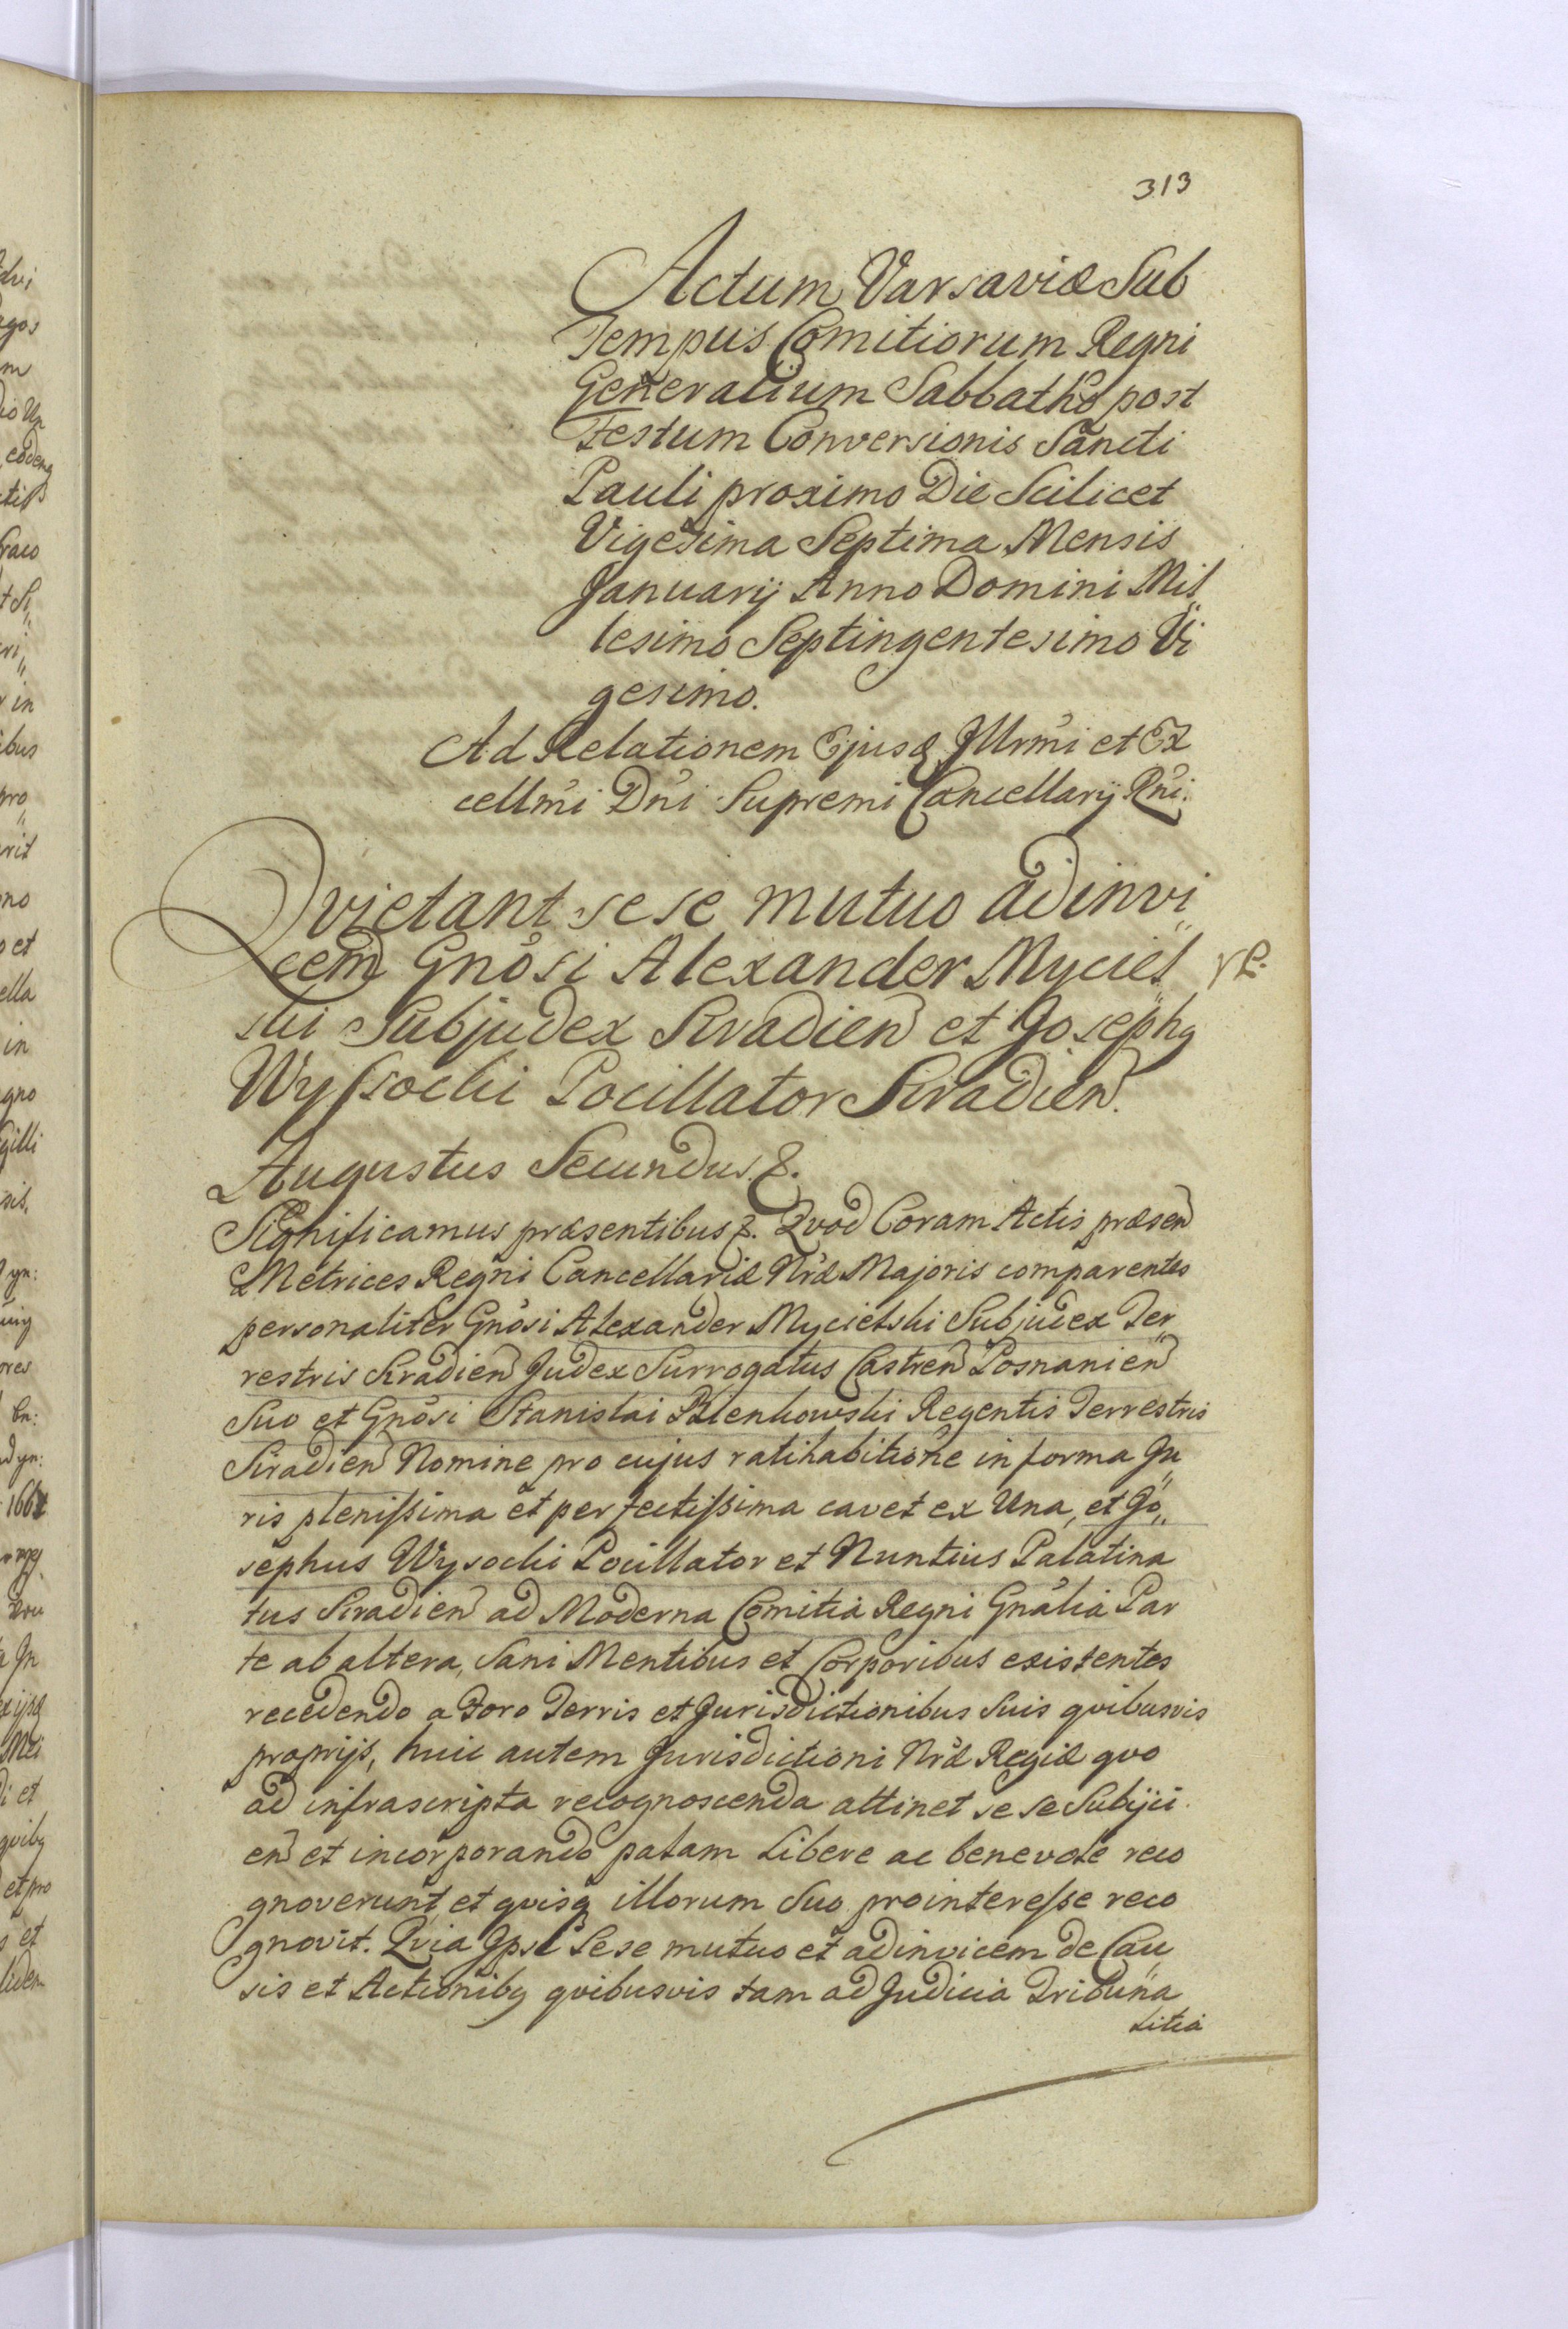 313
Actum Varsaviæ Sub
Tempus Comitiorum Regni
Generalium Sabbatho post
Festum Conversionis Sancti
Pauli proximo Die Scilicet
Vigesima Septima Mensis
Januarij Anno Domini Mil„
lesimo Septingentesimo Vi„
gesimo.
Ad Relationem Ejusd Illrmi et Ex
cellmi Dni Supremi Cancellarij Rni.
Qvietant sese mutuo adinvi„
cem Gnosi Alexander Myciel„
ski Subjudex Siradien et Josephg
Wyssocki Pocillator Siradien.
Augustus Secundus &.
Significamus præsentibus &. Qvod Coram Actis præsen
Metrices Regni Cancellariæ Nræ Majoris comparentes
personaliter Gnosi Alexander Mycielski Subjudex Ter„
restris Siradien Judex Surrogatus Castren Posnanien
Suo et Gnosi Stanislai Błenkowski Regentis Terrestris
Siradien Nomine pro cujus ratihabitione in forma Ju„
ris plenissima et perfectissima cavet ex Una, et Jo„
sephus Wysocki Pocillator et Nuntius Palatina
tus Siradien ad Moderna Comitia Regni Gnalia Par
te ab altera, Sani Mentibus et Corporibus existentes
recedendo a Foro Terris et Jurisdictionibus Suis qvibusvis
proprijs, huic autem Jurisdictioni Nræ Regiæ qvo
ad infrascripta recognoscenda attinet se se Subijci
en et incorporando palam Libere ac benevole reco
gnoverunt et qvisq illorum Suo prointeresse reco
gnovit. Qvia Ipsi Sese mutuo et adinvicem de Cau„
sis et Actionibg qvibusvis tam ad Judicia Tribuna„
Litia